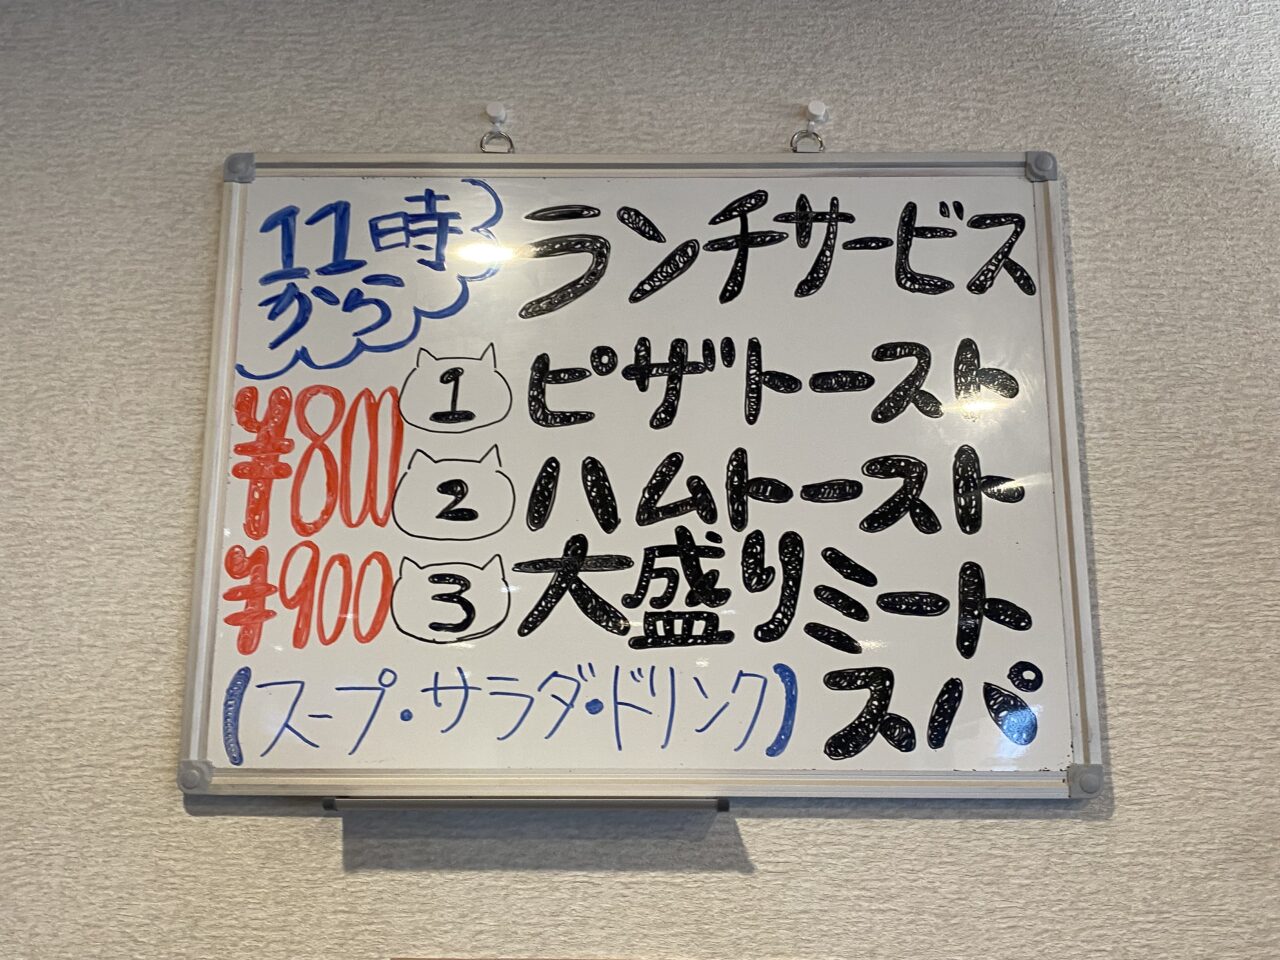 11時から ランチサービス
¥800 1 ピザトースト
2 ハムトースト
¥900 3 大盛りミート
(スープ・サラダ・ドリンク) スパ